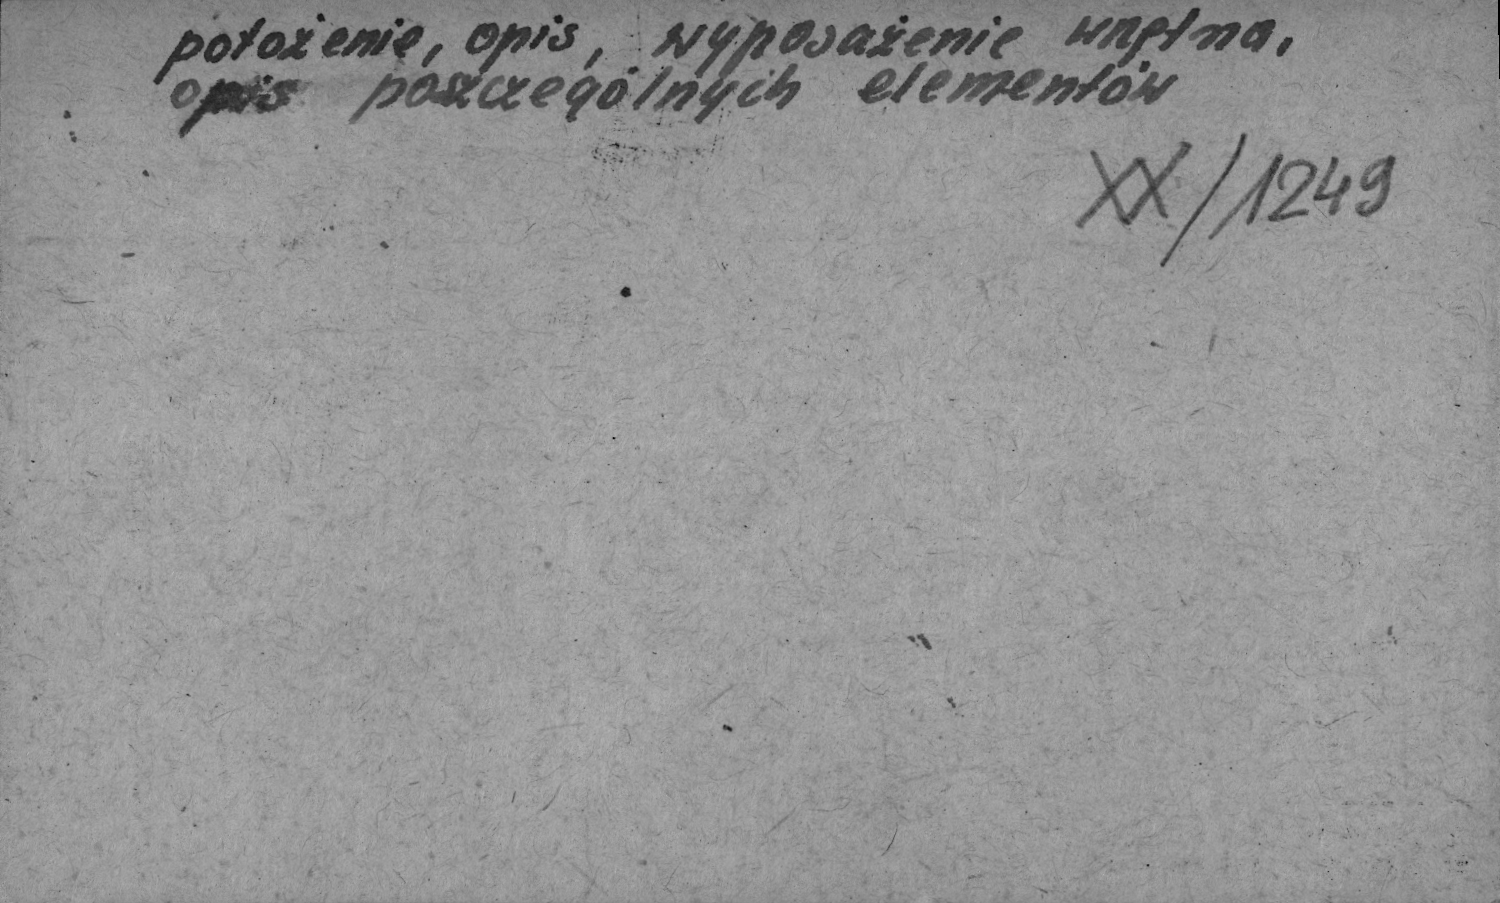 położenie, opis, wyposażenie wnętrza,
opis poszczególnych elementów
XX/1249